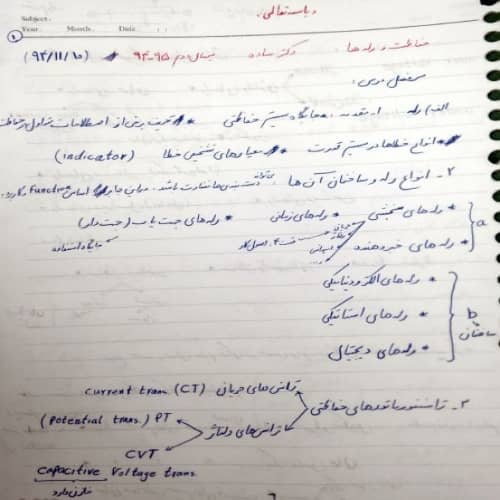 و یاسمه تعالی.
Subject:
Year. Month. Date.
۱
حفاظت و رله ها دکتر ساده نیمسال دوم ۹۵-۹۴ (۹۴/۱۱/۱۰)
سرفصل درس:
الف) رله ۱- مقدمه: جایگاه سیستم حفاظتی * تعریف برخی از اصطلاحات متداول در حفاظت
* انواع خطاها در سیستم قدرت * معیارهای تشخیص خطا (indicator)
۲- انواع رله و ساختمان آن ها: دسته بندی ها متفاوت باشد. اساس Function
a * رله های سنجشی * رله های زمانی * رله های جهت یاب (جهت دار)
* رله های خبر دهنده
b ساختمان * رله های الکترودینامیکی
* رله های استاتیکی
* رله های دیجیتال
۳- ترانسفورماتورهای حفاظتی ترانس های جریانی Current trans. (CT)
ترانس های ولتاژ (Potential trans.) PT
CVT
Capacitive Voltage trans.
خازن دارد